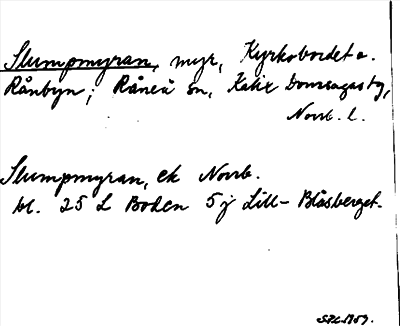 Slumpmyran, myr, Kyrkobordet o.
Rånbyn; Råneå sn, Kalix Domsagas tg,
Norrb. l.
Slumpmyran, ek Norrb.
bl. 25 L Boden 5 j Lill-Blåsberget.